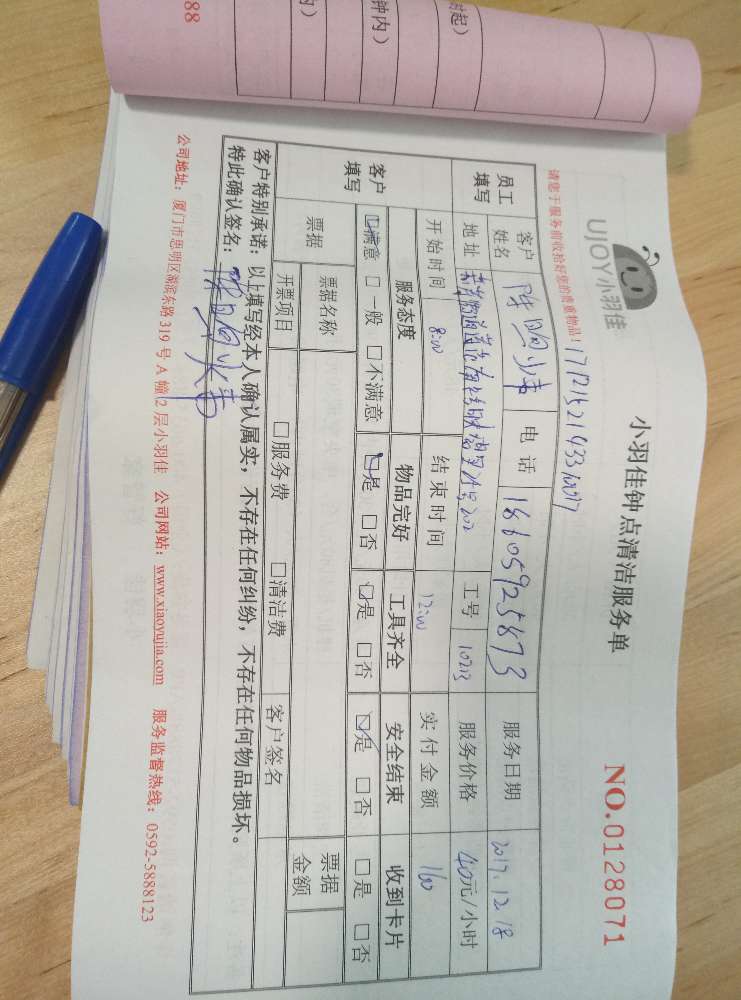 UJOY小羽佳
小羽佳钟点清洁服务单
NO.0128071
请您于服务前收拾好您的贵重物品！
员工填写 客户姓名 陈 电话 18605925873 服务日期 2017.12.18
地址 202 工号 10213 服务价格 40元/小时
开始时间 8:00 结束时间 12:00 实付金额 160
客户填写 服务态度 物品完好 工具齐全 安全结束 收到卡片
☑满意 □一般 □不满意 ☑是 □否 ☑是 □否 ☑是 □否 □是 □否
票据 票据名称 票据金额
开票项目 □服务费 □清洁费 客户签名
客户特别承诺：以上填写经本人确认属实，不存在任何纠纷，不存在任何物品损坏。
特此确认签名：
公司地址：厦门市思明区湖滨东路319号A幢12层小羽佳 公司网站：www.xiaoyujia.com 服务监督热线：0592-5888123
88
钟内）